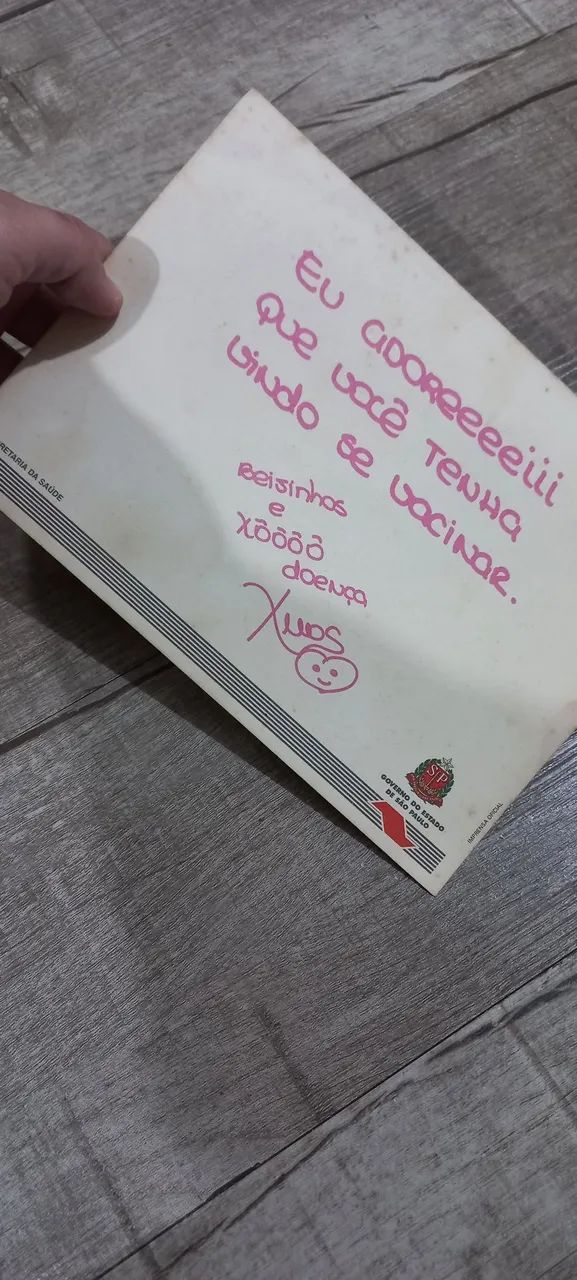 EU ADOREEEEiii
QUE VOCÊ TENHA
VINDO SE VACINAR.
Beijinhos
e
XÔÔÔÔ
doença
Xuxa
RETARIA DA SAÚDE
SP
GOVERNO DO ESTADO
DE SÃO PAULO
IMPRENSA OFICIAL